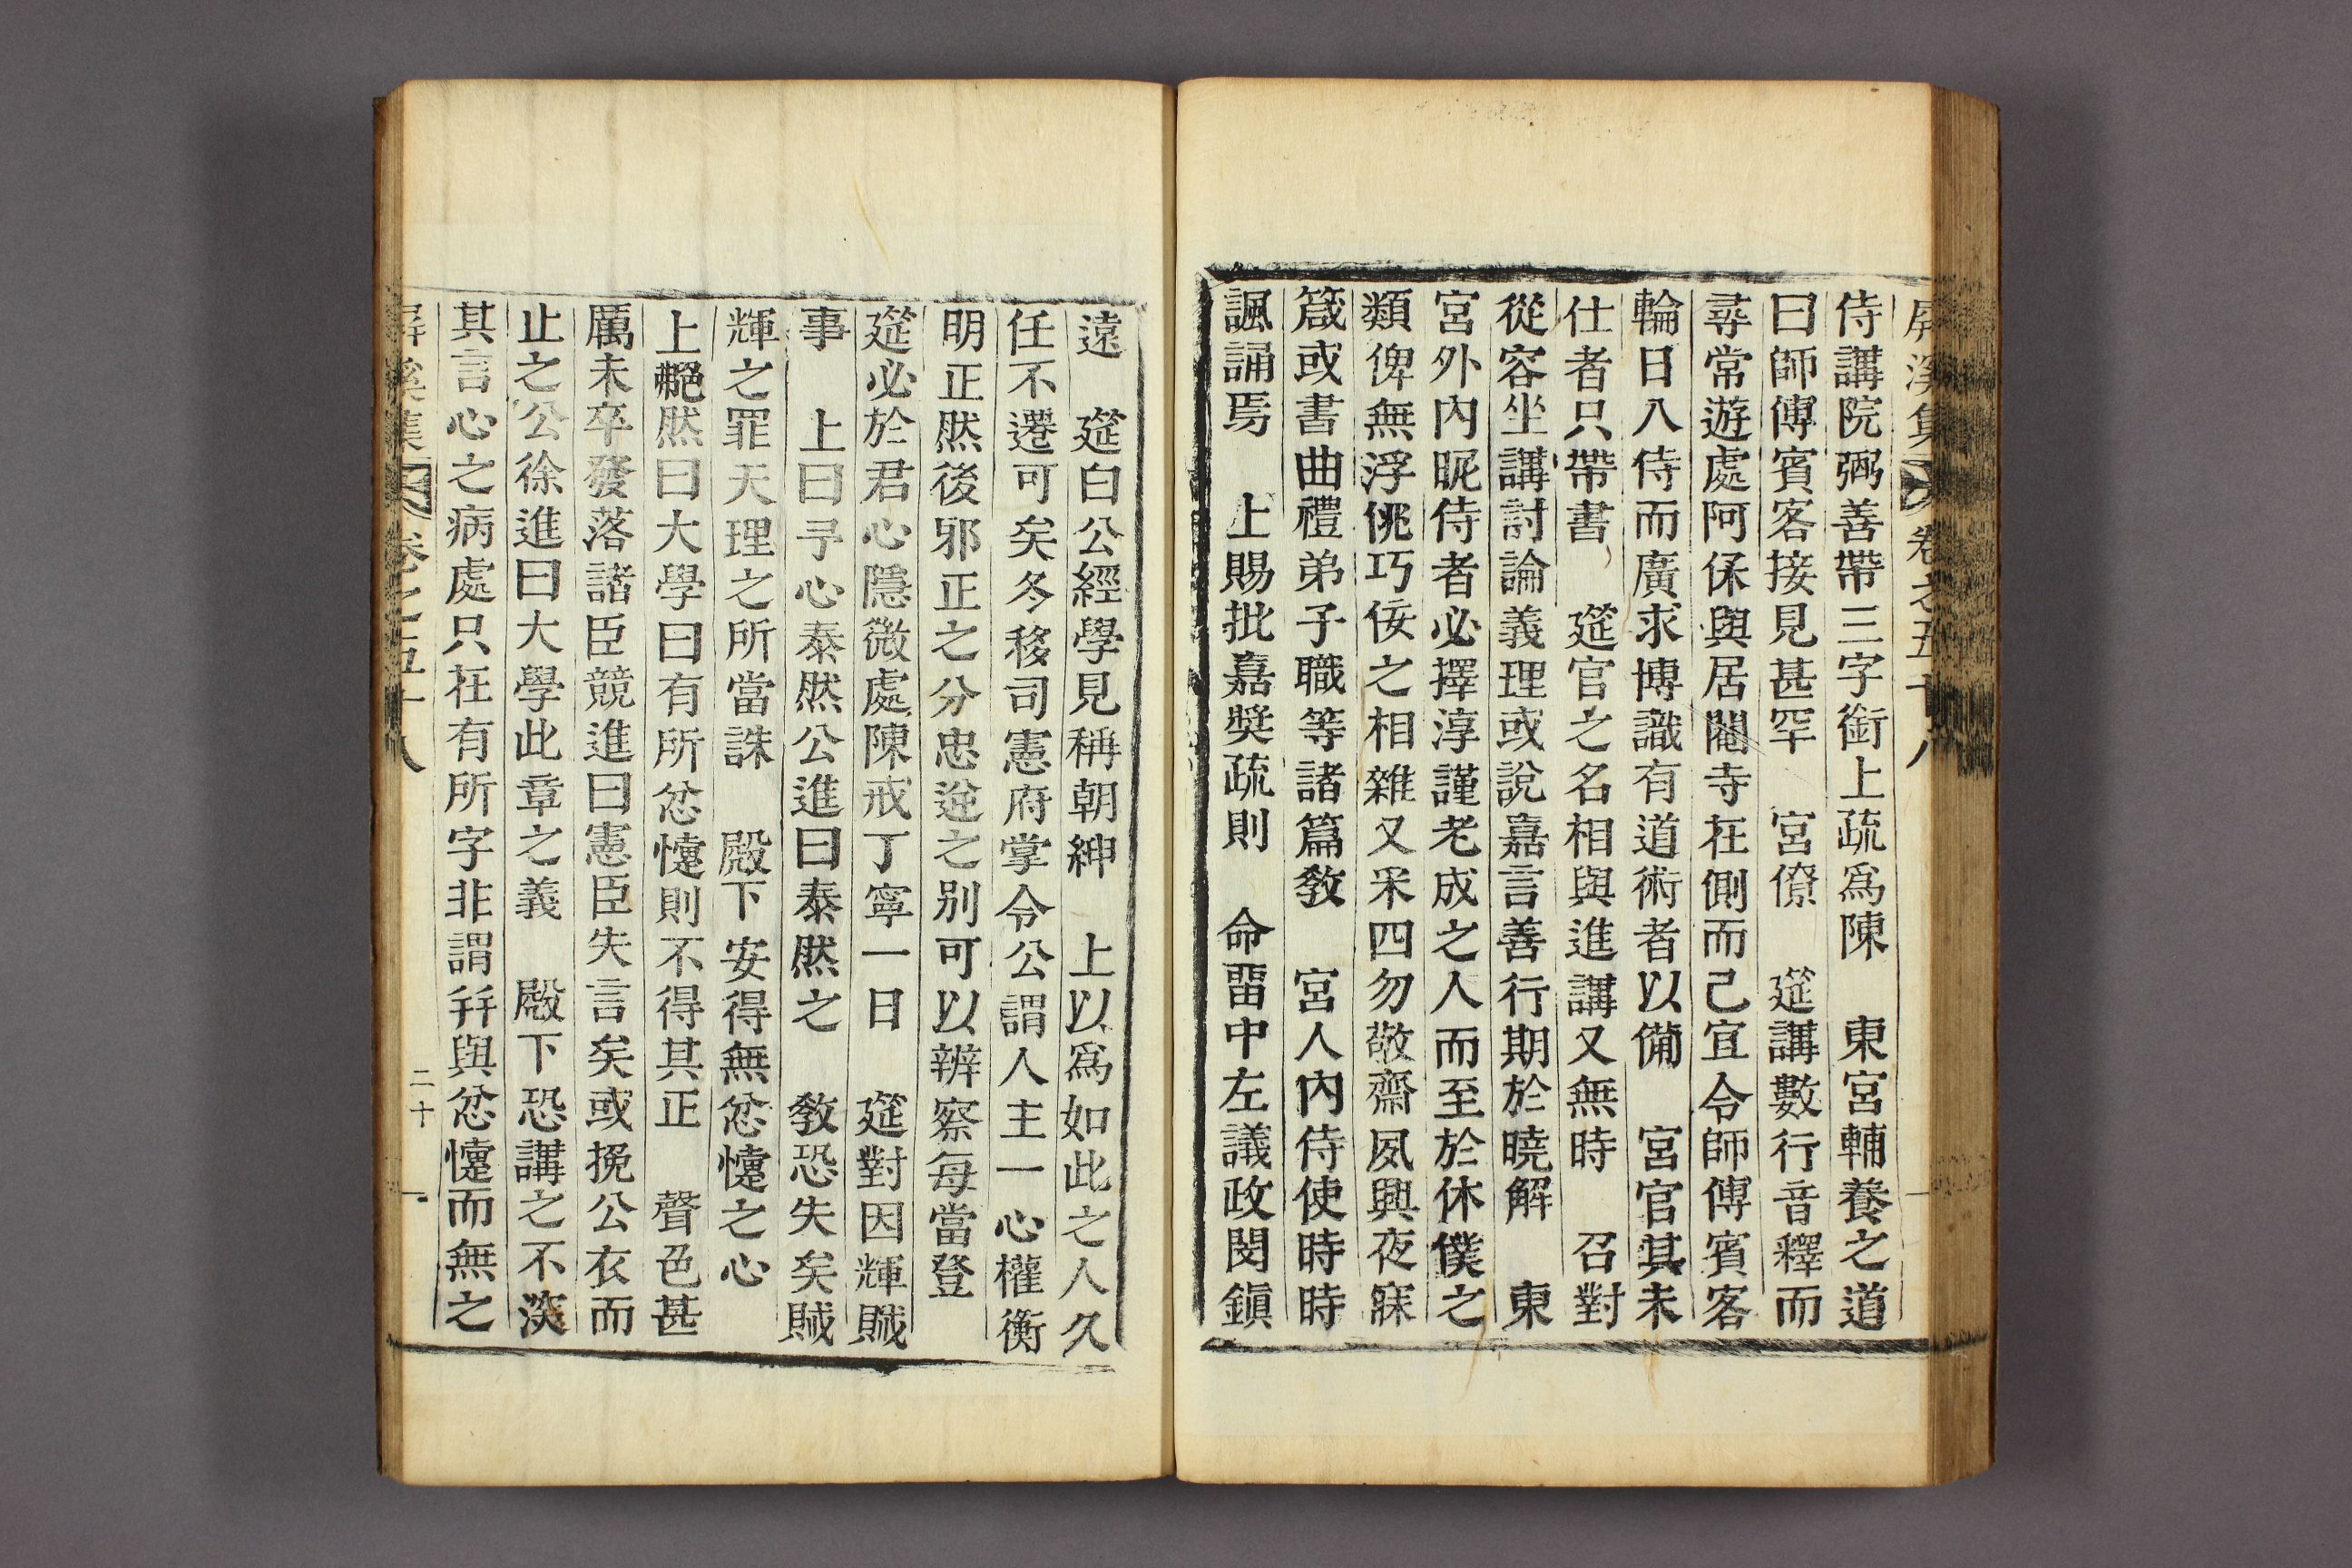 屏溪集 卷之五十八
侍講院弼善帶三字銜上疏爲陳 東宮輔養之道
曰師傅賓客接見甚罕 宮僚 筵講數行音釋而
尋常遊處阿保與居閹寺在側而己宜令師傅賓客
輪日入侍而廣求博識有道術者以備 宮官其未
仕者只帶書 筵官之名相與進講又無時 召對
從容坐講討論義理或說嘉言善行期於曉解 東
宮外內昵侍者必擇淳謹老成之人而至於休僕之
類俾無浮佻巧佞之相雜又采四勿敬齋夙興夜寐
箴或書曲禮弟子職等諸篇敎 宮人內侍使時時
諷誦焉 上賜批嘉奬疏則 命留中左議政閔鎭
遠 筵白公經學見稱朝紳 上以爲如此之人久
任不遷可矣冬移司憲府掌令公謂人主一心權衡
明正然後邪正之分忠逆之別可以辨察每當登
筵必於君心隱微處陳戒丁寧一日 筵對因輝賊
事 上曰予心泰然公進曰泰然之 敎恐失矣賊
輝之罪天理之所當誅 殿下安得無忿懥之心
上艴然曰大學曰有所忿懥則不得其正 聲色甚
厲未卒發落諸臣競進曰憲臣失言矣或挽公衣而
止之公徐進曰大學此章之義 殿下恐講之不深
其言心之病處只在有所字非謂幷與忿懥而無之
屏溪集 卷之五十八 二十一